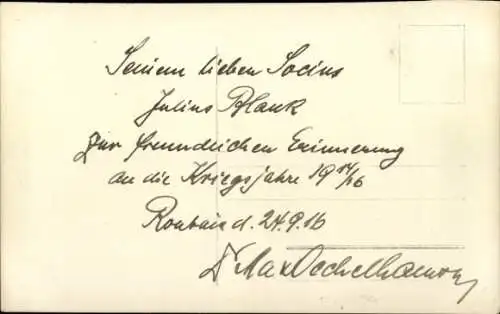 Seinem lieben Socius
Julius Blank
zur freundlichen Erinnerung
an die Kriegsjahre 19 14/16
Roubaix d. 24.9.16
Dr Max Oechelhaeuser